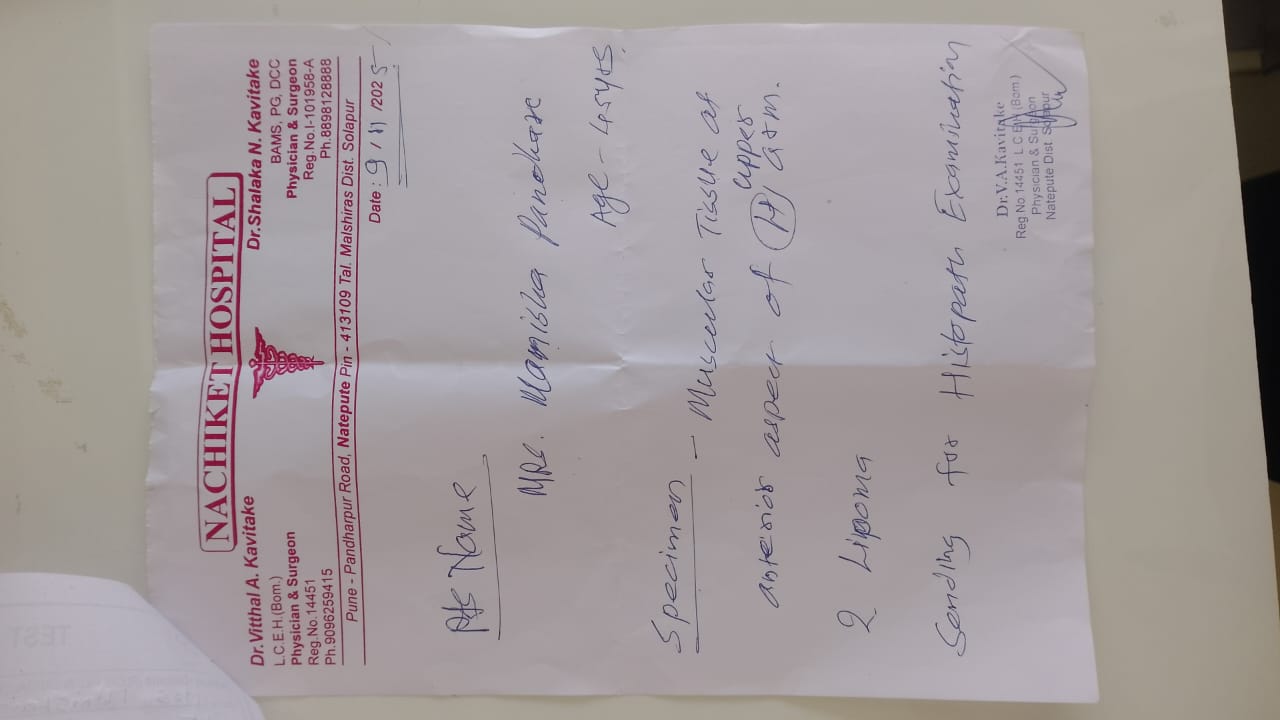 NACHIKET HOSPITAL
Dr.Vitthal A. Kavitake
L.C.E.H.(Bom.)
Physician & Surgeon
Reg.No.14451
Ph.9096259415
Dr.Shalaka N. Kavitake
BAMS, PG, DCC
Physician & Surgeon
Reg.No.I-101958-A
Ph.8898128888
Pune - Pandharpur Road, Natepute Pin - 413109 Tal. Malshiras Dist. Solapur
Date : 9 / 11 /2025
Name
Mrs. Manisha Pandhare
Age - 45yrs.
Specimen - Muscular Tissue at
anterior aspect of upper arm.
2 Lipoma
Sending for Histopath Examination
Dr.V.A.Kavitake
Reg.No.14451 L.C.E.H.(Bom)
Physician & Surgeon
Natepute Dist Solapur
TEST